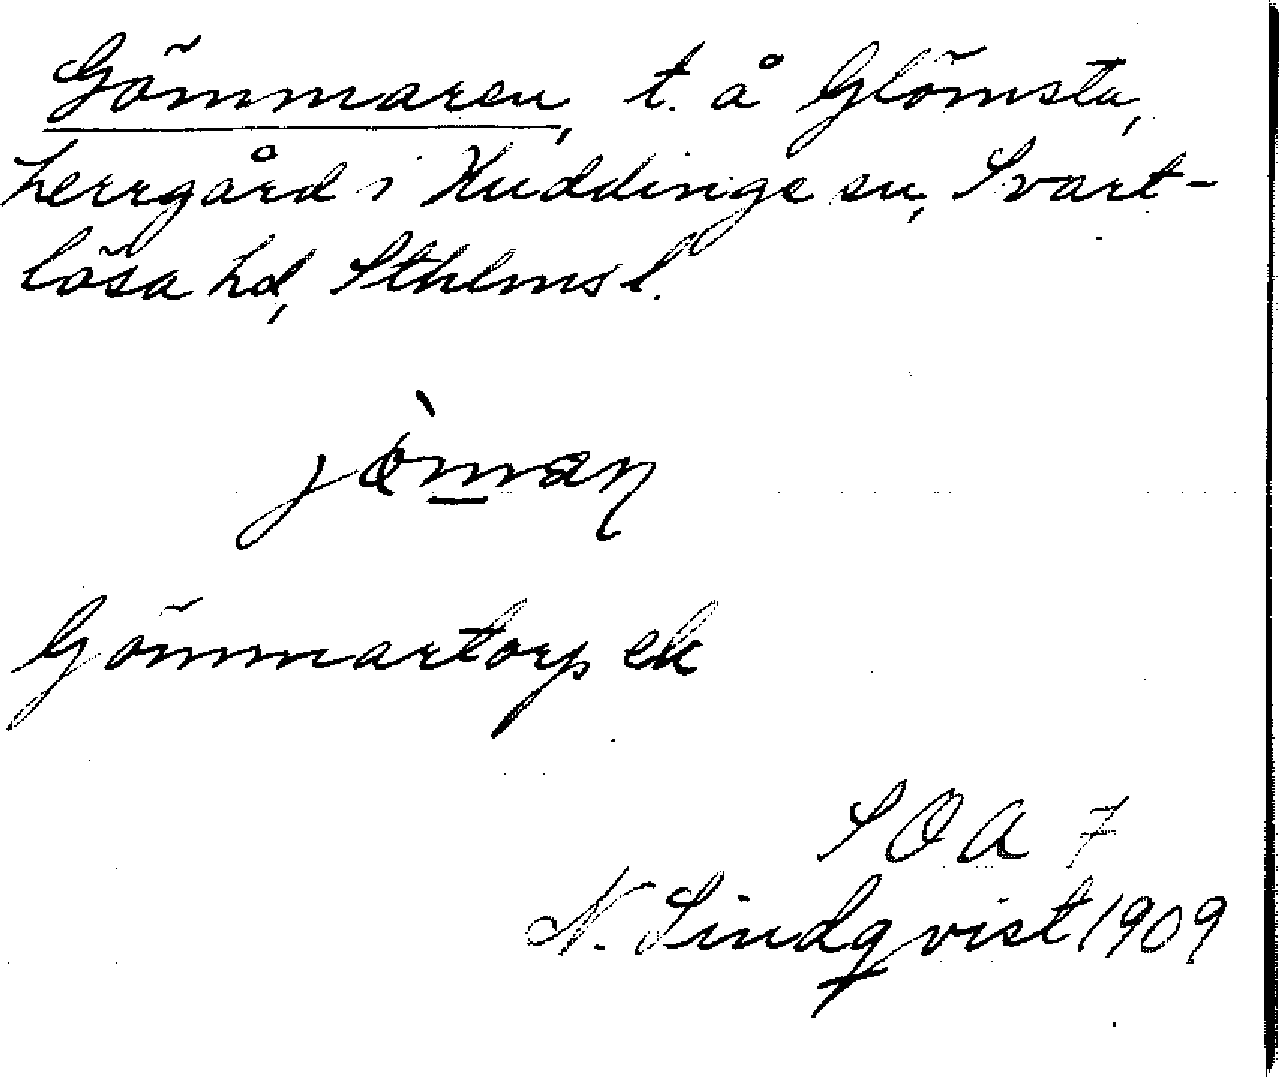 Gömmaren, t. å Glömsta,
herrgård i Huddinge sn, Svart-
lösa hd, Sthlms l.
Gömmartorp ek
SOA 7
N. Lindqvist 1909